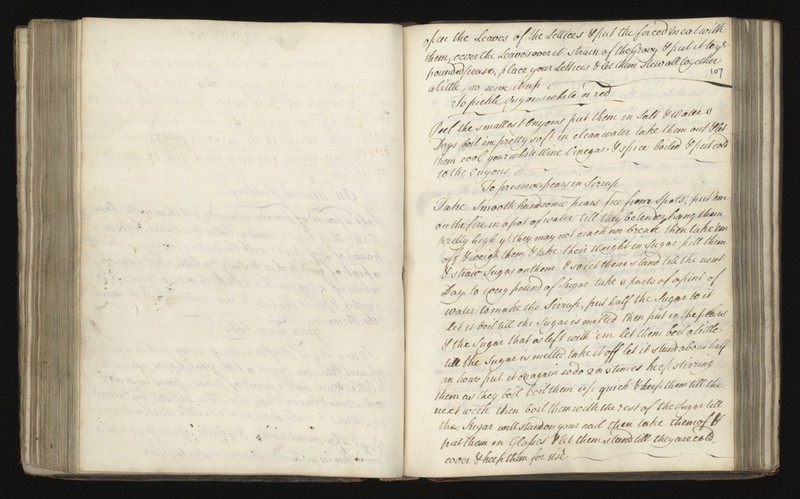 open the Leaves of the Lettices & put the forced meat with
them, cover the Leaves over it strain of the Gravy & put it to ye
pounded pease, place your Lettices & let them Stew all together
107
a little, so serve it up
To pickle Onyons white or red
Peel the smallest Onyons put them in Salt & Water
Days boil 'em pretty soft in clean water take them out & let
them cool your white Wine Vinegar & spice boiled & put cold
to the Onyons
To preserve pears in Sirrup
Take Smooth handsome pears free from Spots, put 'em
on the fire in a pot of water till they be tender hang them
pretty high yt they may not crack nor break then take 'em
off & weigh them & take their Weight in Sugar pill them
& straw Sugar on them & so let them stand till the next
Day to every pound of Sugar take parts of a pint of
water to make the Sirrup, put half the Sugar to it
let it boil till the Sugar is melted then put in the pears
& the Sugar that is left with 'em let them boil a little
till the Sugar is melted take it off let it stand about half
an hour put it on again so do 2 or times keep stirring
them as they boil boil them up quick & keep them till the
next week then boil them with the rest of the Sugar till
the Sugar will stand on your nail then take them off &
put them in Glasses & let them stand till they are cold
cover & keep them for use